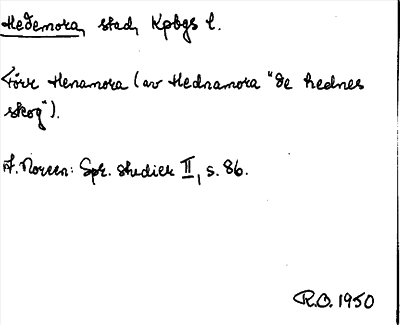 Hedemora, stad, Kpbgs l.
Förr Henamora (av Hednamora "de hednes
skog").
A. Noreen: Spr. studier II, s. 86.
R.O. 1950